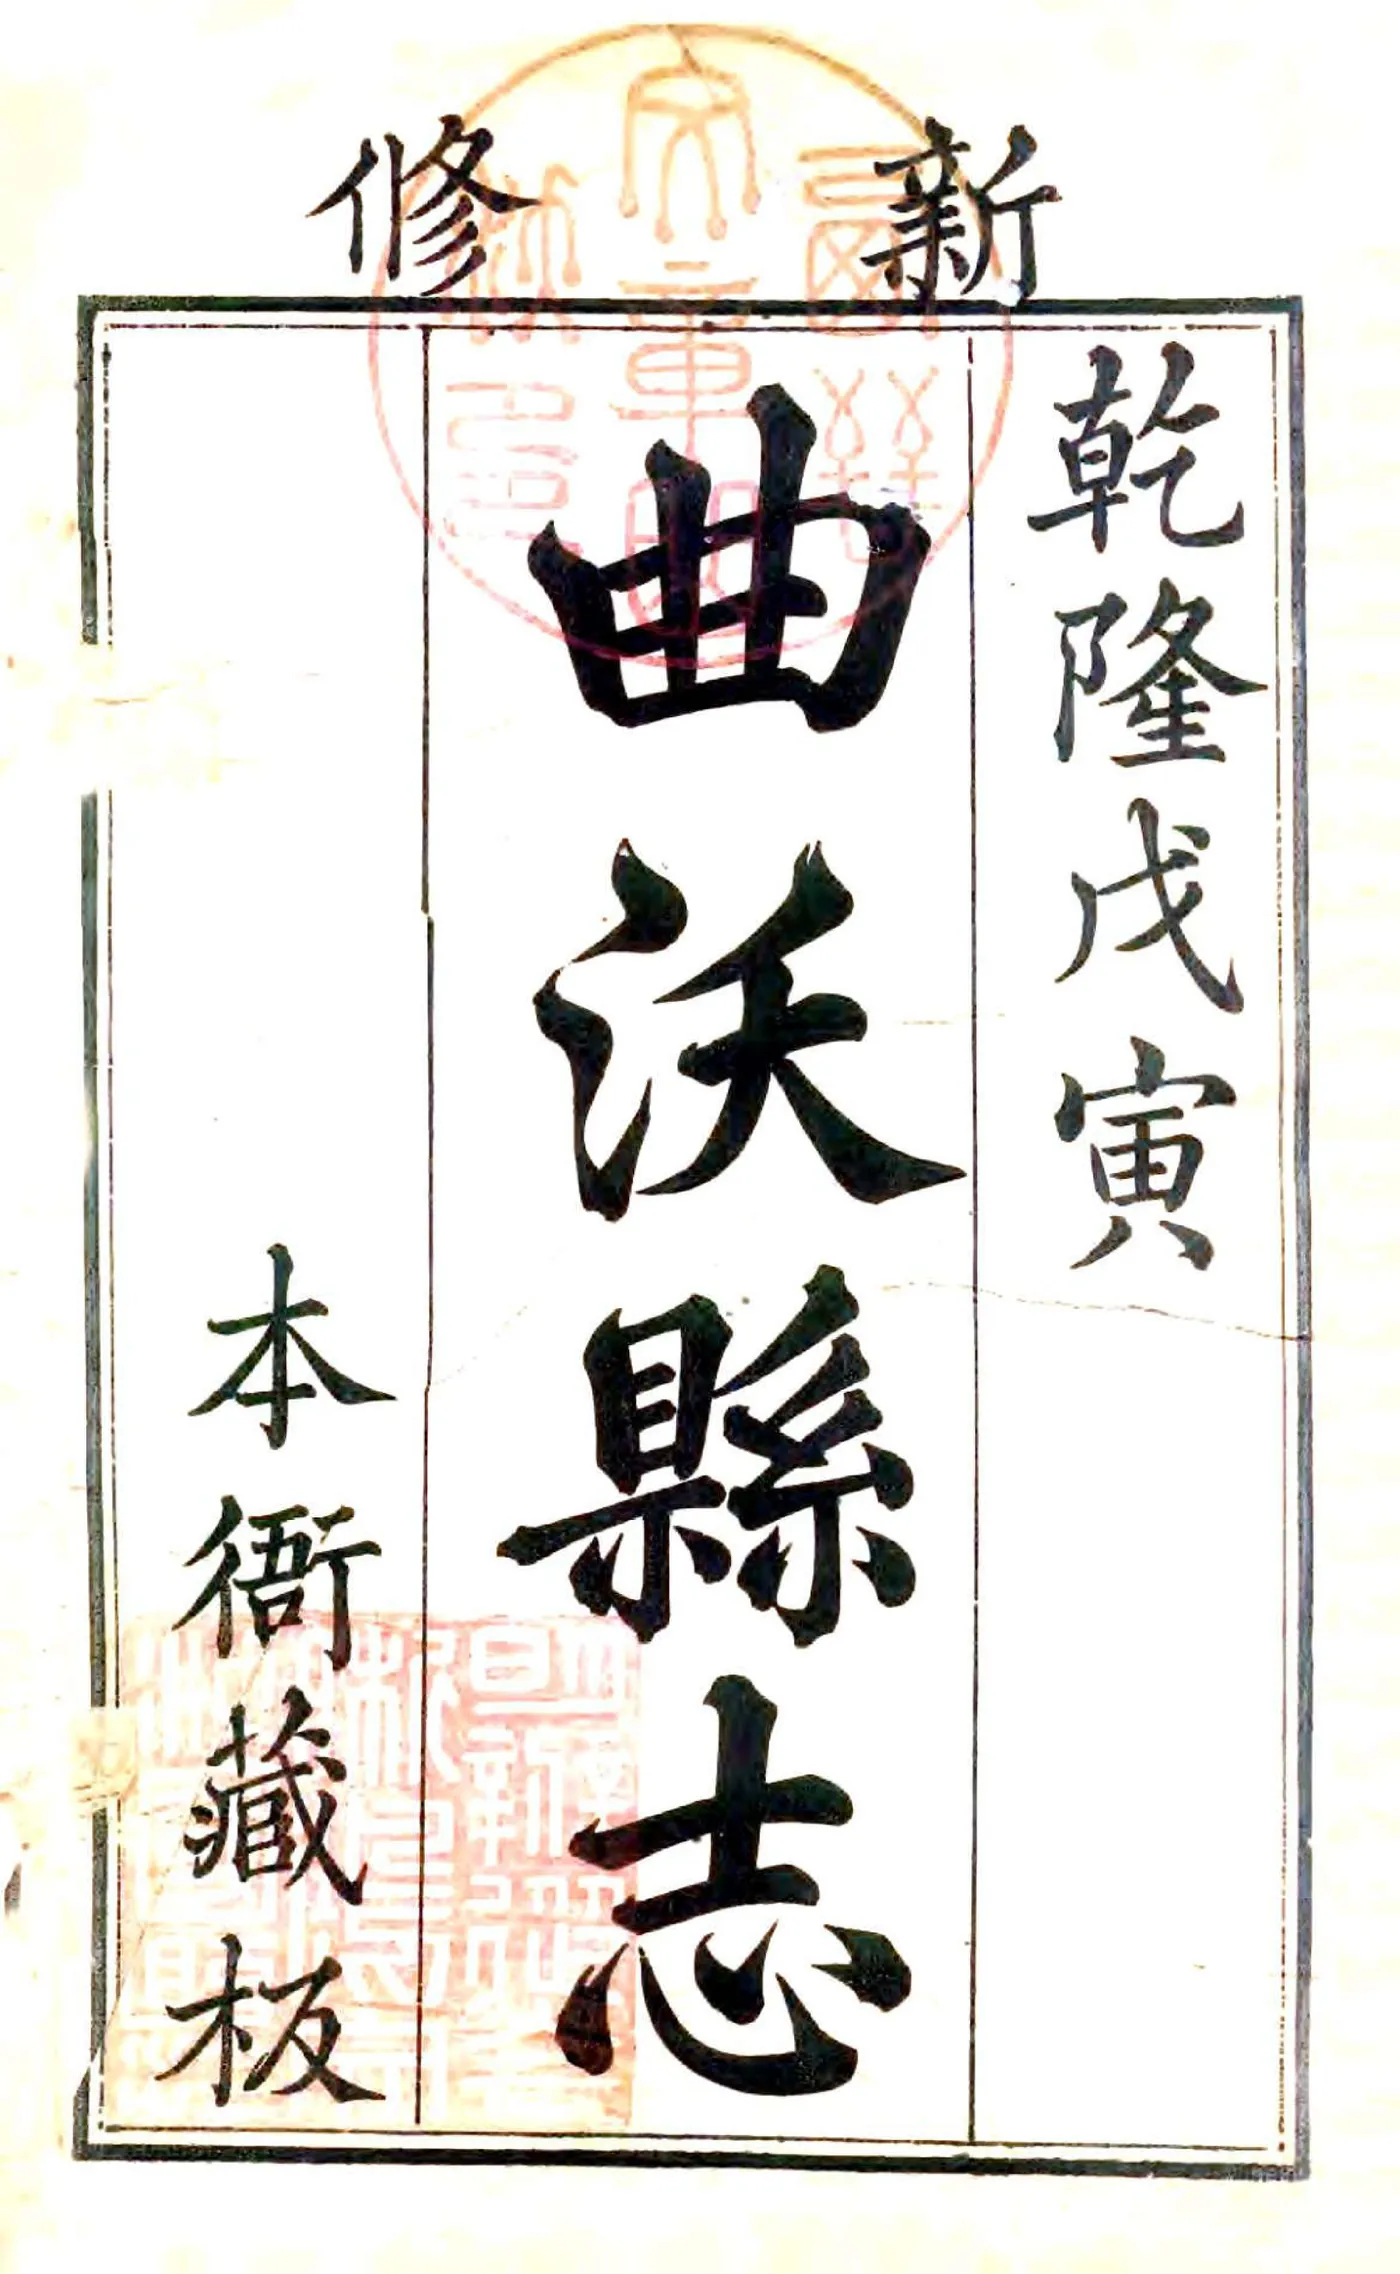 新修
乾隆戊寅
曲沃縣志
本衙藏板